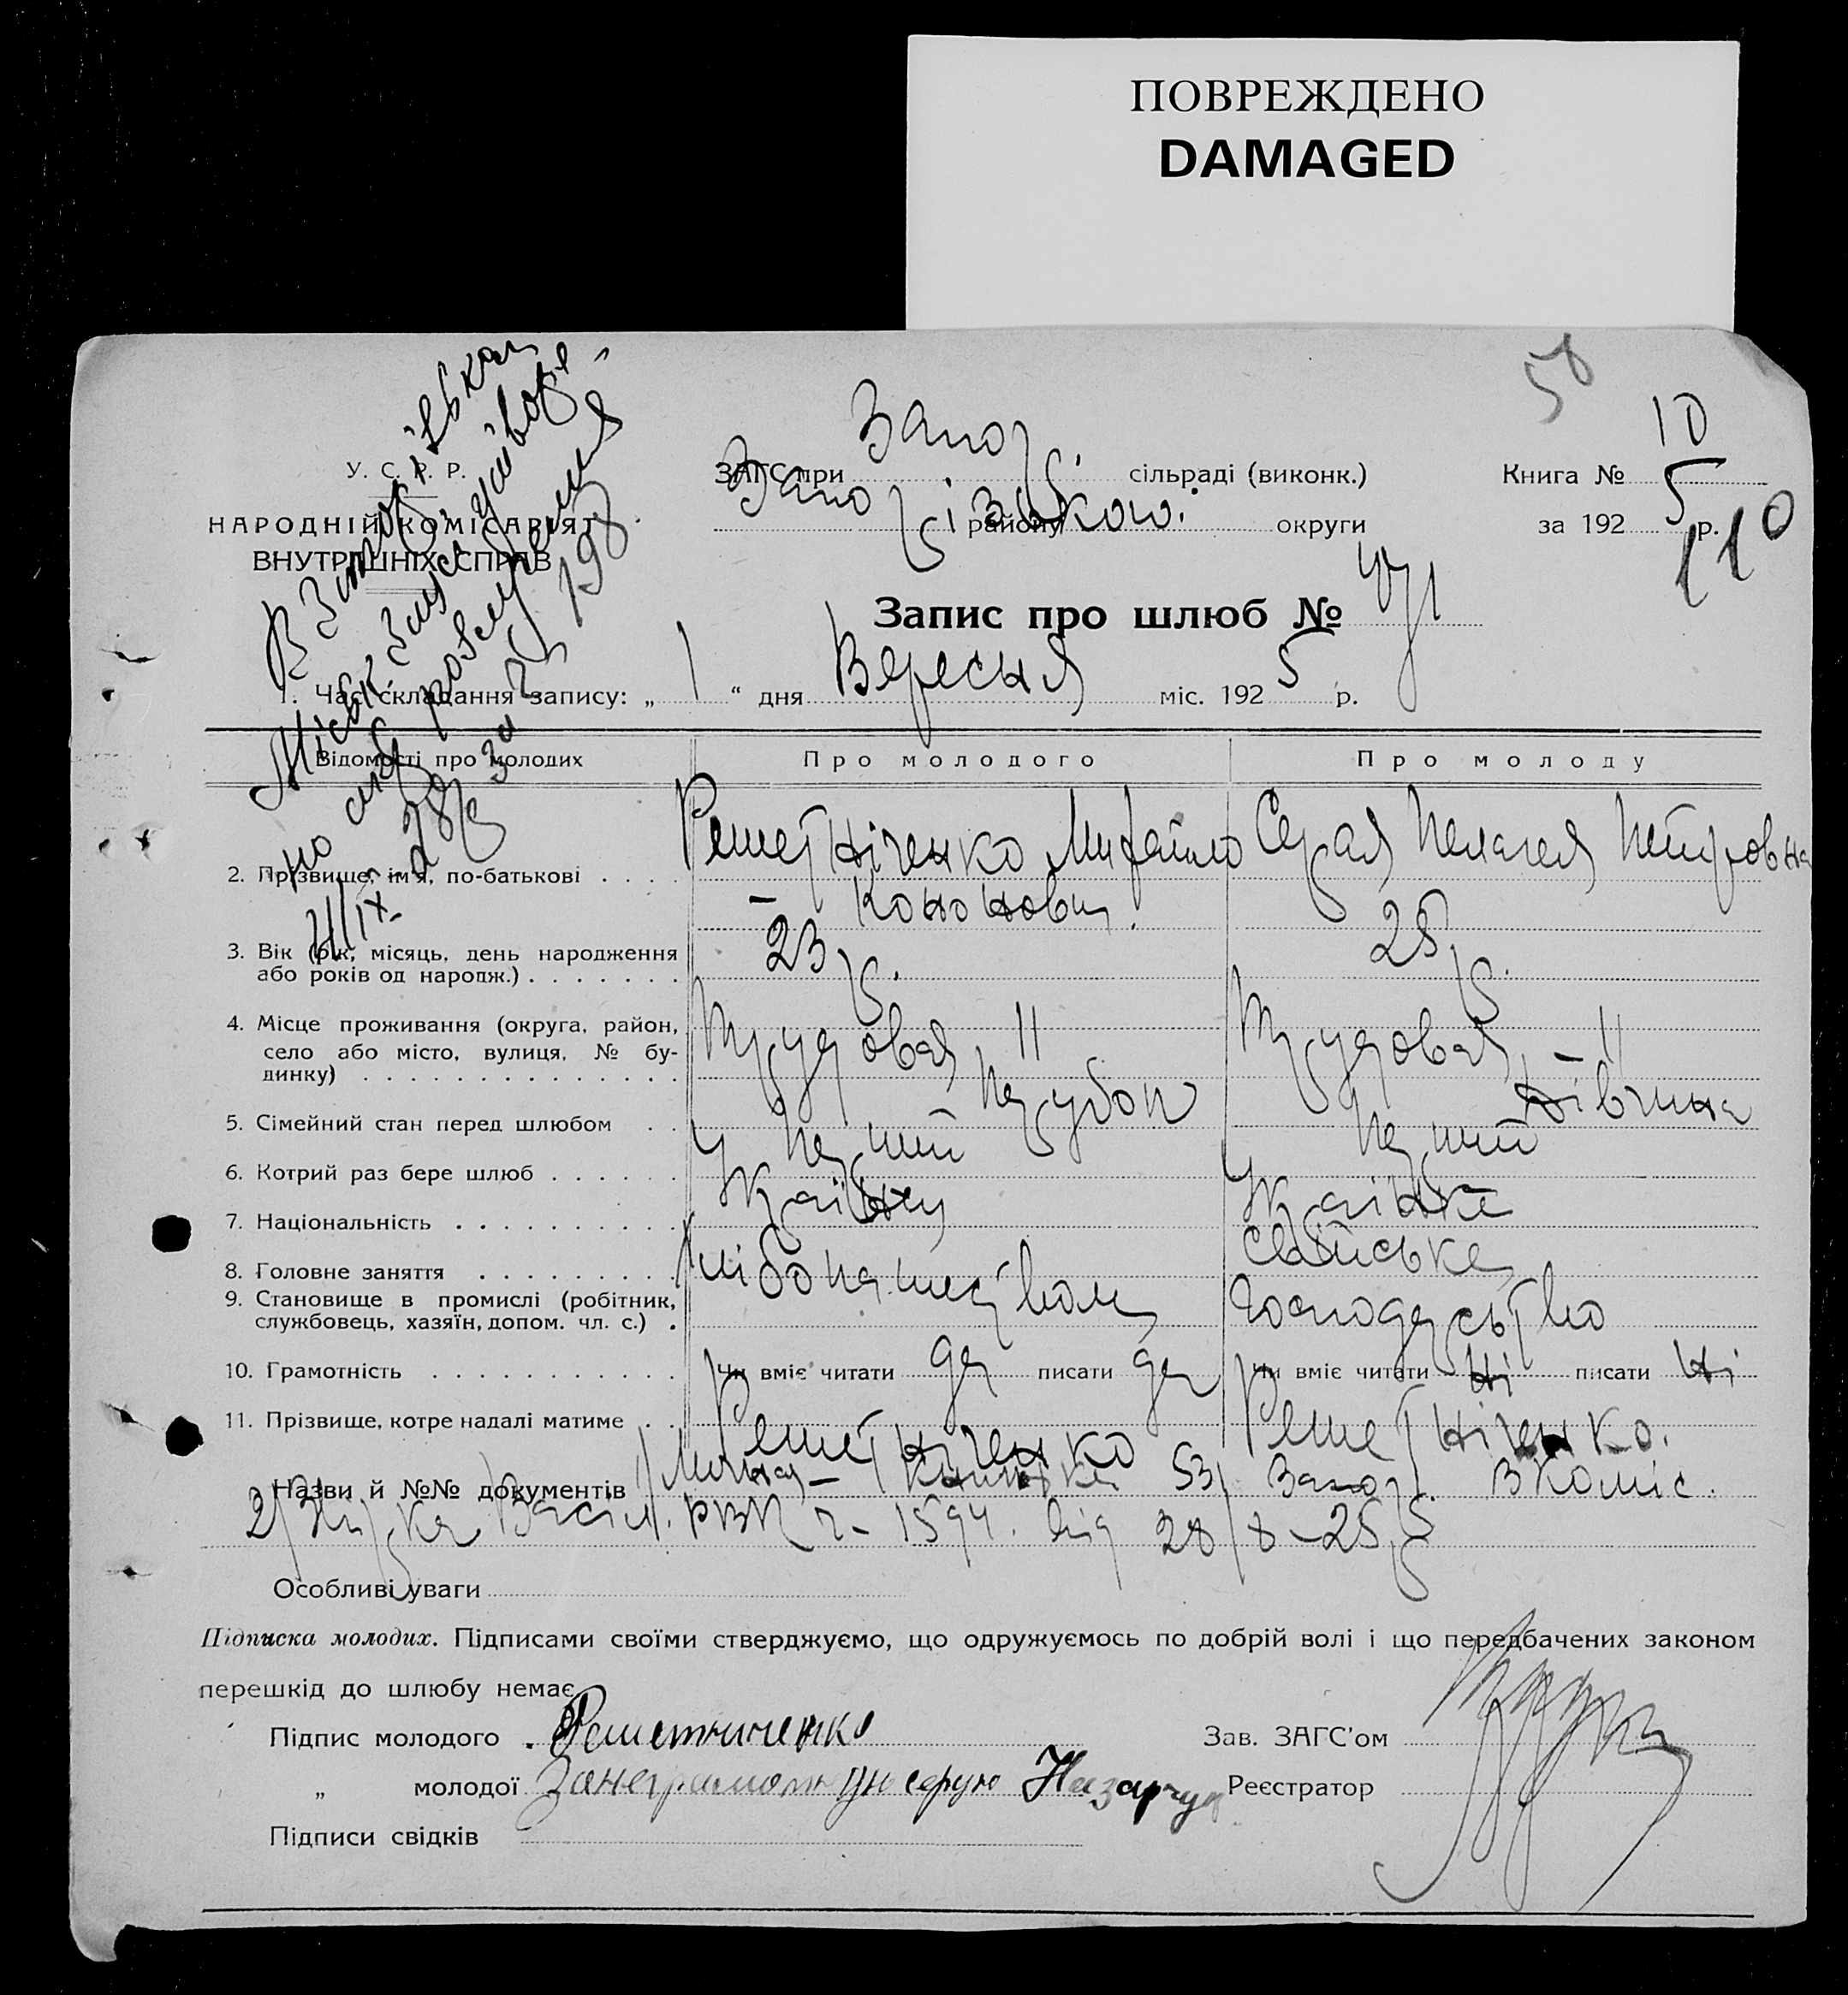 ПОВРЕЖДЕНО
DAMAGED
58
У. С. Р. Р.
НАРОДНІЙ КОМІСАРІЯТ
ВНУТРІШНІХ СПРАВ
ЗАГС при Запор. сільраді (виконк.)
району Запорізькой округи
Книга № 10
за 1925 р.
110
Запис про шлюб № 471
1. Час складання запису: „ 1 “ дня Вересня міс. 1925 р.
Відомості про молодих Про молодого Про молоду
2. Прізвище, ім'я, по-батькові . . . . Решетніченко Михайло Серая Пелагея Петровна
– Кононович.
3. Вік (рік, місяць, день народження
або років од народж.) . . . . . . . 23 р. 25 р.
4. Місце проживання (округа, район,
село або місто, вулиця, № бу-
динку) . . . . . . . . . . . . . . Трудовая, 11 Трудовая, – 11
5. Сімейний стан перед шлюбом . . Парубок Дівчина
6. Котрий раз бере шлюб . . . . . . Перший Перший
7. Національність . . . . . . . . . . Українка
8. Головне заняття . . . . . . . . . хлібопашеством свійське
9. Становище в промислі (робітник,
службовець, хазяїн, допом. чл. с.) . господарство
10. Грамотність . . . . . . . . . . . Чи вміє читати да писати да Чи вміє читати ні писати ні
11. Прізвище, котре надалі матиме . . Решетніченко Решетніченко.
Назви й №№ документів книжка 53 Запор. ВКоміс.
2) Васіл. РВК ч – 1594. від 28/8–25 р
Особливі уваги
Підписка молодих. Підписами своїми стверджуємо, що одружуємось по добрій волі і що передбачених законом
перешкід до шлюбу немає
Підпис молодого . Решетниченко
„ молодої За неграмотную серую Назарчук
Підписи свідків
Зав. ЗАГС'ом
Реєстратор